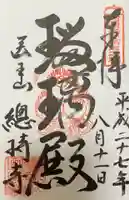 奉拝
平成二十七年
八月十一日
瑠璃殿
總持寺